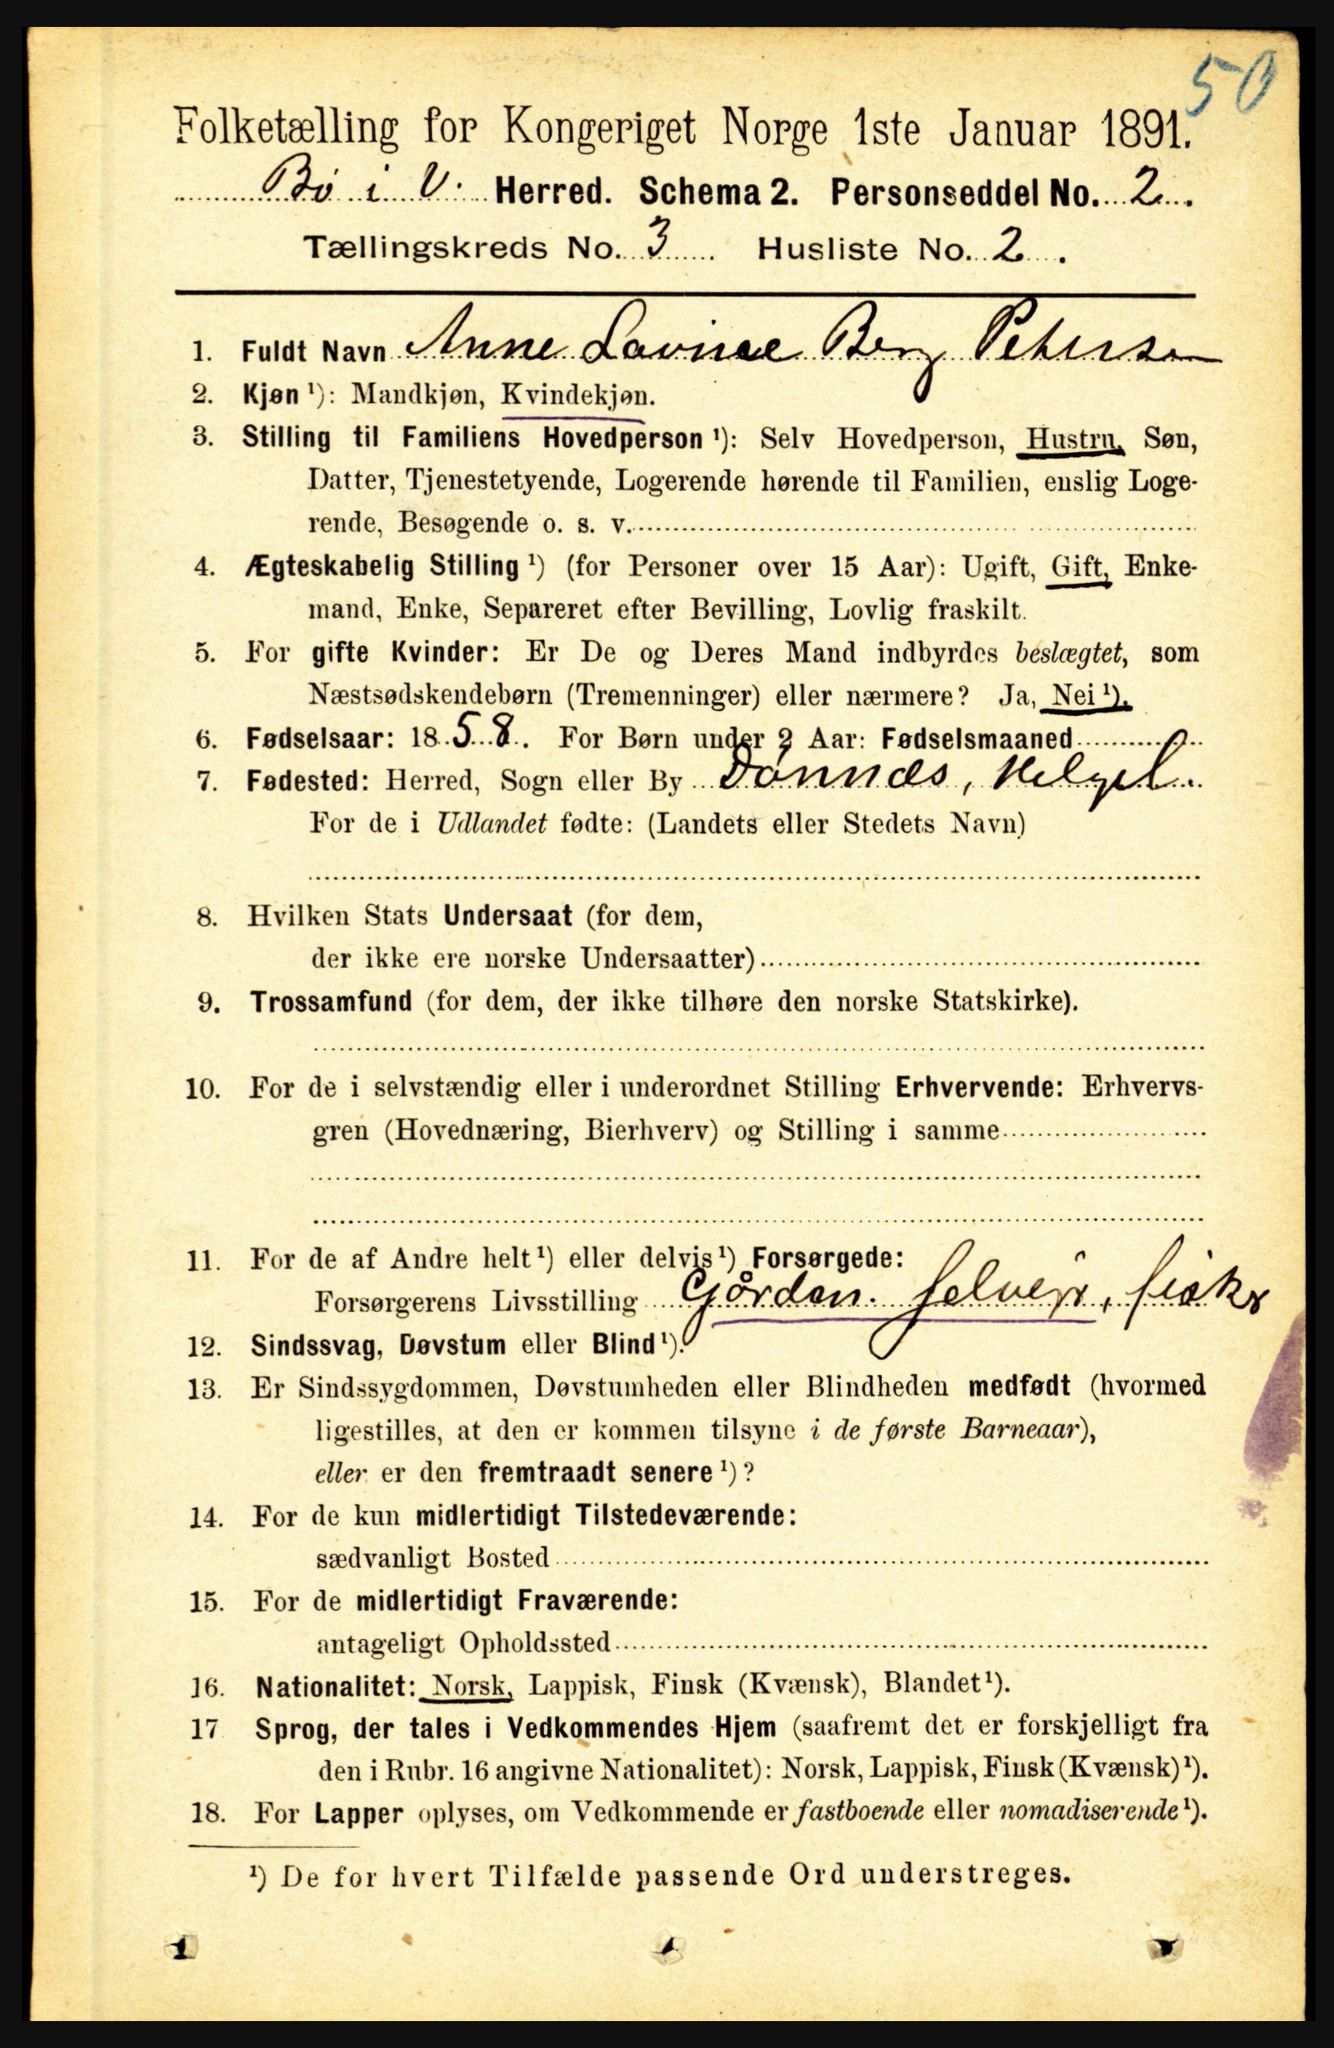 50
Folketælling for Kongeriget Norge 1ste Januar 1891.
Bø i V. Herred. Schema 2. Personseddel No. 2.
Tællingskreds No. 3 Husliste No. 2.
1. Fuldt Navn Anne Lovise Berg Peterson
2. Kjøn ¹): Mandkjøn, Kvindekjøn.
3. Stilling til Familiens Hovedperson ¹): Selv Hovedperson, Hustru, Søn,
Datter, Tjenestetyende, Logerende hørende til Familien, enslig Loge-
rende, Besøgende o. s. v.
4. Ægteskabelig Stilling ¹) (for Personer over 15 Aar): Ugift, Gift, Enke-
mand, Enke, Separeret efter Bevilling, Lovlig fraskilt.
5. For gifte Kvinder: Er De og Deres Mand indbyrdes beslægtet, som
Næstsødskendebørn (Tremenninger) eller nærmere? Ja, Nei ¹).
6. Fødselsaar: 1858. For Børn under 2 Aar: Fødselsmaaned
7. Fødested: Herred, Sogn eller By Dønnæs, Helgel.
For de i Udlandet fødte: (Landets eller Stedets Navn)
8. Hvilken Stats Undersaat (for dem,
der ikke ere norske Undersaatter)
9. Trossamfund (for dem, der ikke tilhøre den norske Statskirke).
10. For de i selvstændig eller i underordnet Stilling Erhvervende: Erhvervs-
gren (Hovednæring, Bierhverv) og Stilling i samme
11. For de af Andre helt ¹) eller delvis ¹) Forsørgede:
Forsørgerens Livsstilling Gårdm. selveir, fisker
12. Sindssvag, Døvstum eller Blind ¹).
13. Er Sindssygdommen, Døvstumheden eller Blindheden medfødt (hvormed
ligestilles, at den er kommen tilsyne i de første Barneaar),
eller er den fremtraadt senere ¹)?
14. For de kun midlertidigt Tilstedeværende:
sædvanligt Bosted
15. For de midlertidigt Fraværende:
antageligt Opholdssted
16. Nationalitet: Norsk, Lappisk, Finsk (Kvænsk), Blandet ¹).
17 Sprog, der tales i Vedkommendes Hjem (saafremt det er forskjelligt fra
den i Rubr. 16 angivne Nationalitet): Norsk, Lappisk, Finsk (Kvænsk) ¹).
18. For Lapper oplyses, om Vedkommende er fastboende eller nomadiserende ¹).
¹) De for hvert Tilfælde passende Ord understreges.